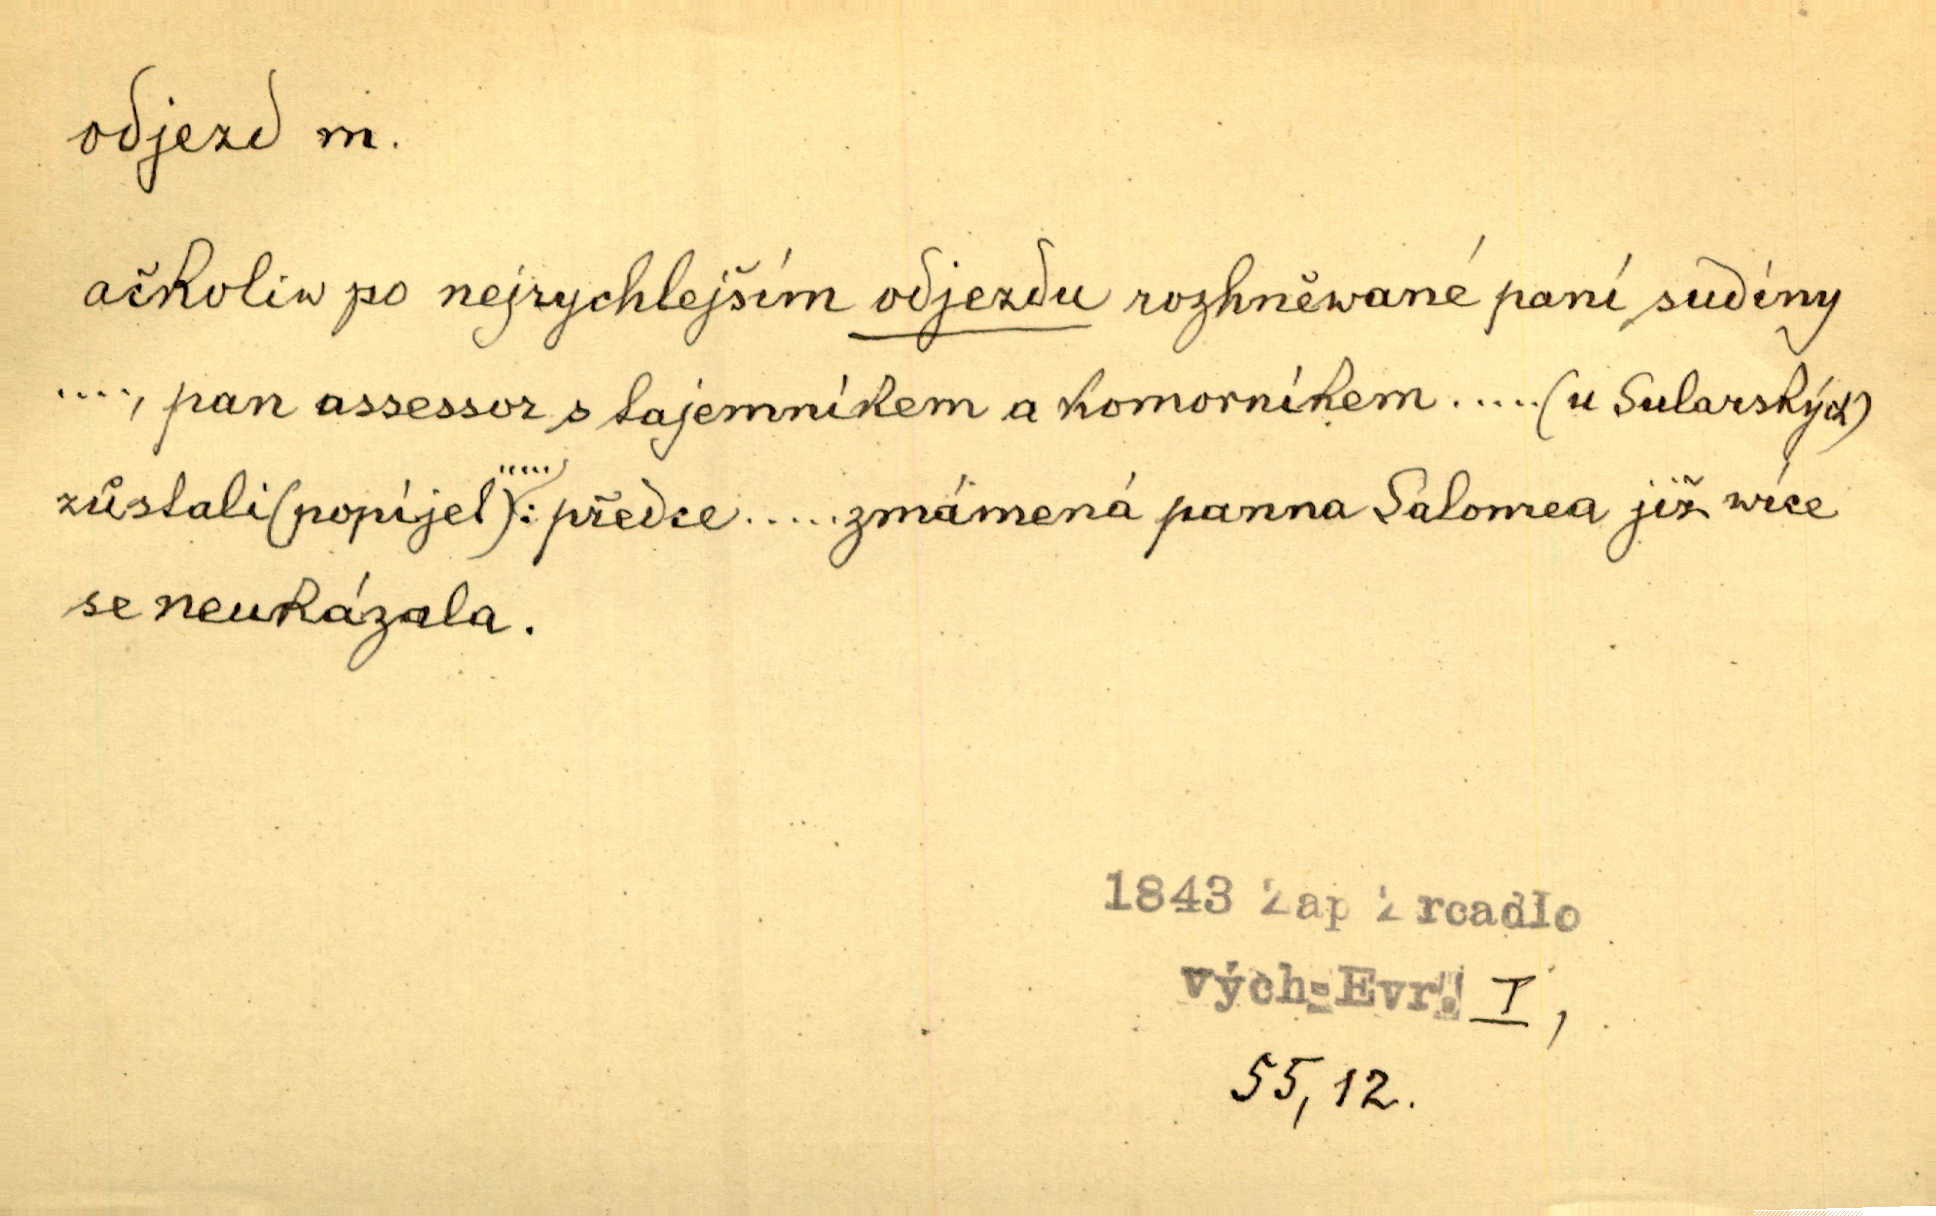 odjezd m.
ačkoliw po nejrychlejším odjezdu rozhněwané paní sudíny
...., pan assessor s tajemníkem a komorníkem .....(u Sularských)
zůstali (popíjet) ..... : předce ..... zmámená panna Salomea již wíce
se neukázala.
1843 Zap Zrcadlo
vých-Evr. I,
55, 12.